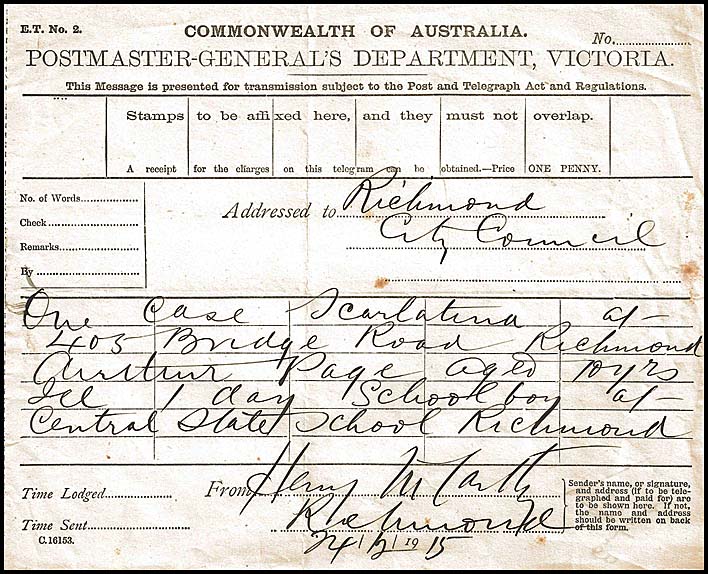 E.T. No. 2.
COMMONWEALTH OF AUSTRALIA.
No.
POSTMASTER-GENERAL'S DEPARTMENT, VICTORIA.
This Message is presented for transmission subject to the Post and Telegraph Act and Regulations.
Stamps to be affixed here, and they must not overlap.
A receipt for the charges on this telegram can be obtained.—Price ONE PENNY.
No. of Words
Check
Remarks
By
Addressed to Richmond
City Council
One case Scarlatina at
405 Bridge Road Richmond
Arthur Page aged 10 yrs
Ill 1 day Schoolboy at
Central State School Richmond
Time Lodged
Time Sent
C.16153.
From Henry
Richmond
1915
Sender's name, or signature, and address (if to be telegraphed and paid for) are to be shown here. If not, the name and address should be written on back of this form.